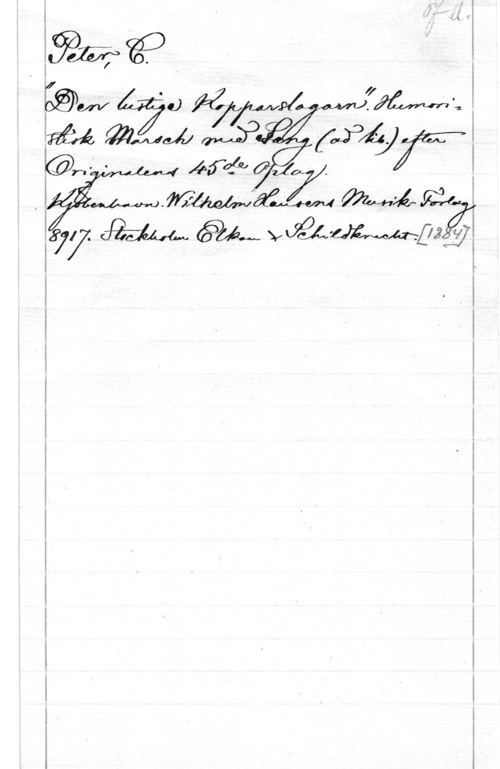 of d.
Peter, C.
"Den lustige Kopparslagarn". Humori=
stisk Marsch med Sang (ad lib.) efter
Originalens 45de Oplag.
Kjøbenhavn. Wilhelm Hansens Musik-Forlag
8917. Stockholm Elkan & Schildknecht. [1884]